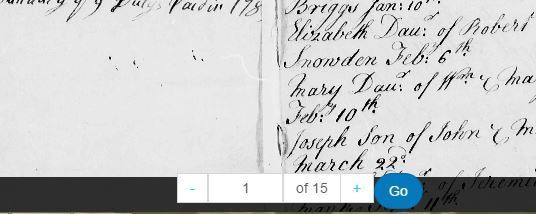 of 9 Duty's Paid in 178
Briggs Jan: 10th
Elizabeth Daur. of Robert
Snowden Feb: 6th
Mary Daur. of Wm & Ma
Feb: 10th
Joseph Son of John & M
March 22d
of Jeremi
11th
- 1 of 15 + Go